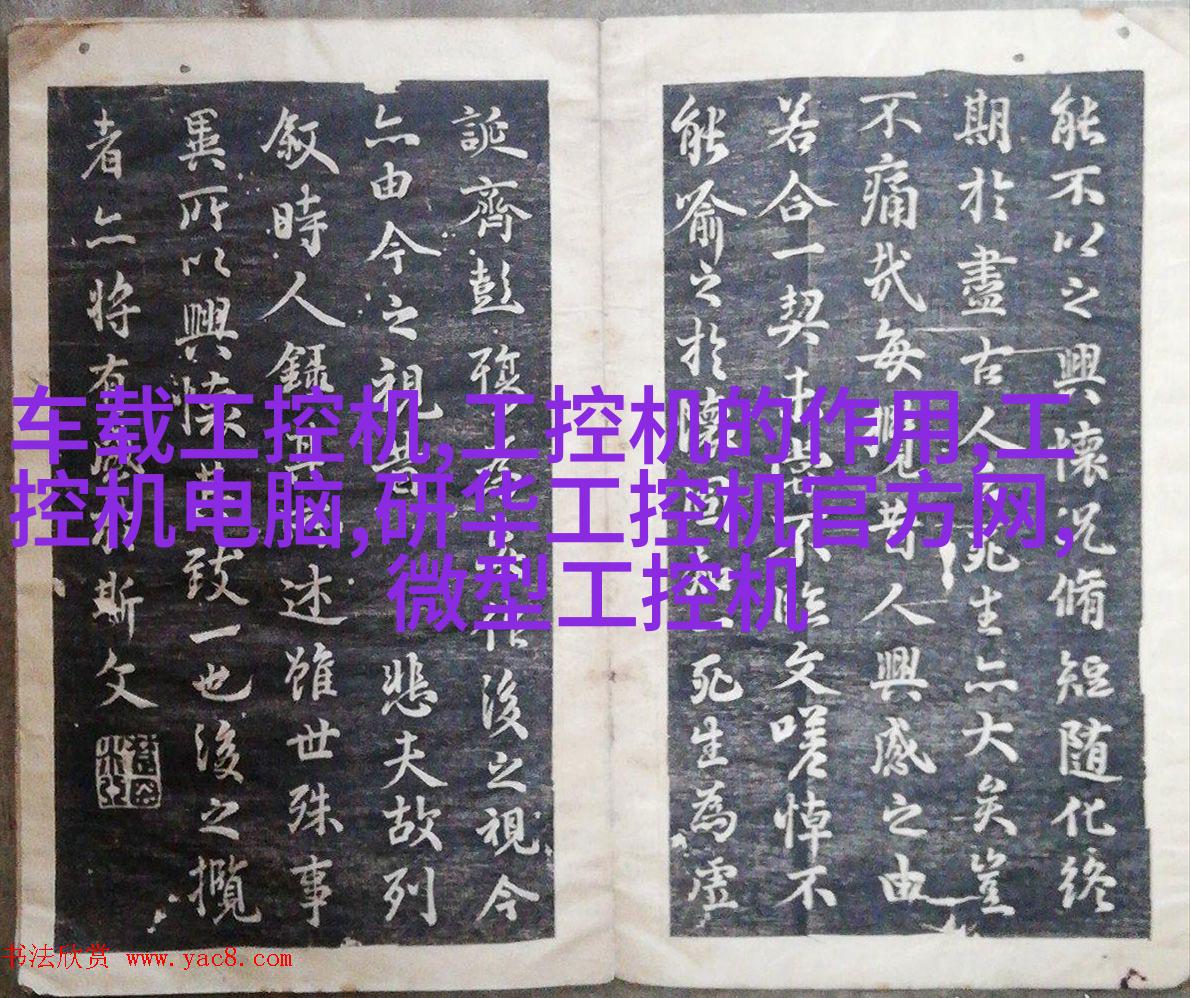 能不以之興懷況脩短随化終
期於盡古人云死生亦大矣豈
不痛哉每覽昔人興感之由
若合一契未嘗不臨文嗟悼不
能喻之於懷固知一死生為虛
誕齊彭殤為妄作後之視今
亦由今之視昔悲夫故列
敘時人錄其所述雖世殊事
異所以興懷其致一也後之攬
者亦將有感於斯文
车载工控机,工控机的作用,工
控机电脑,研华工控机官方网,
微型工控机
书法欣赏 www.yac8.com